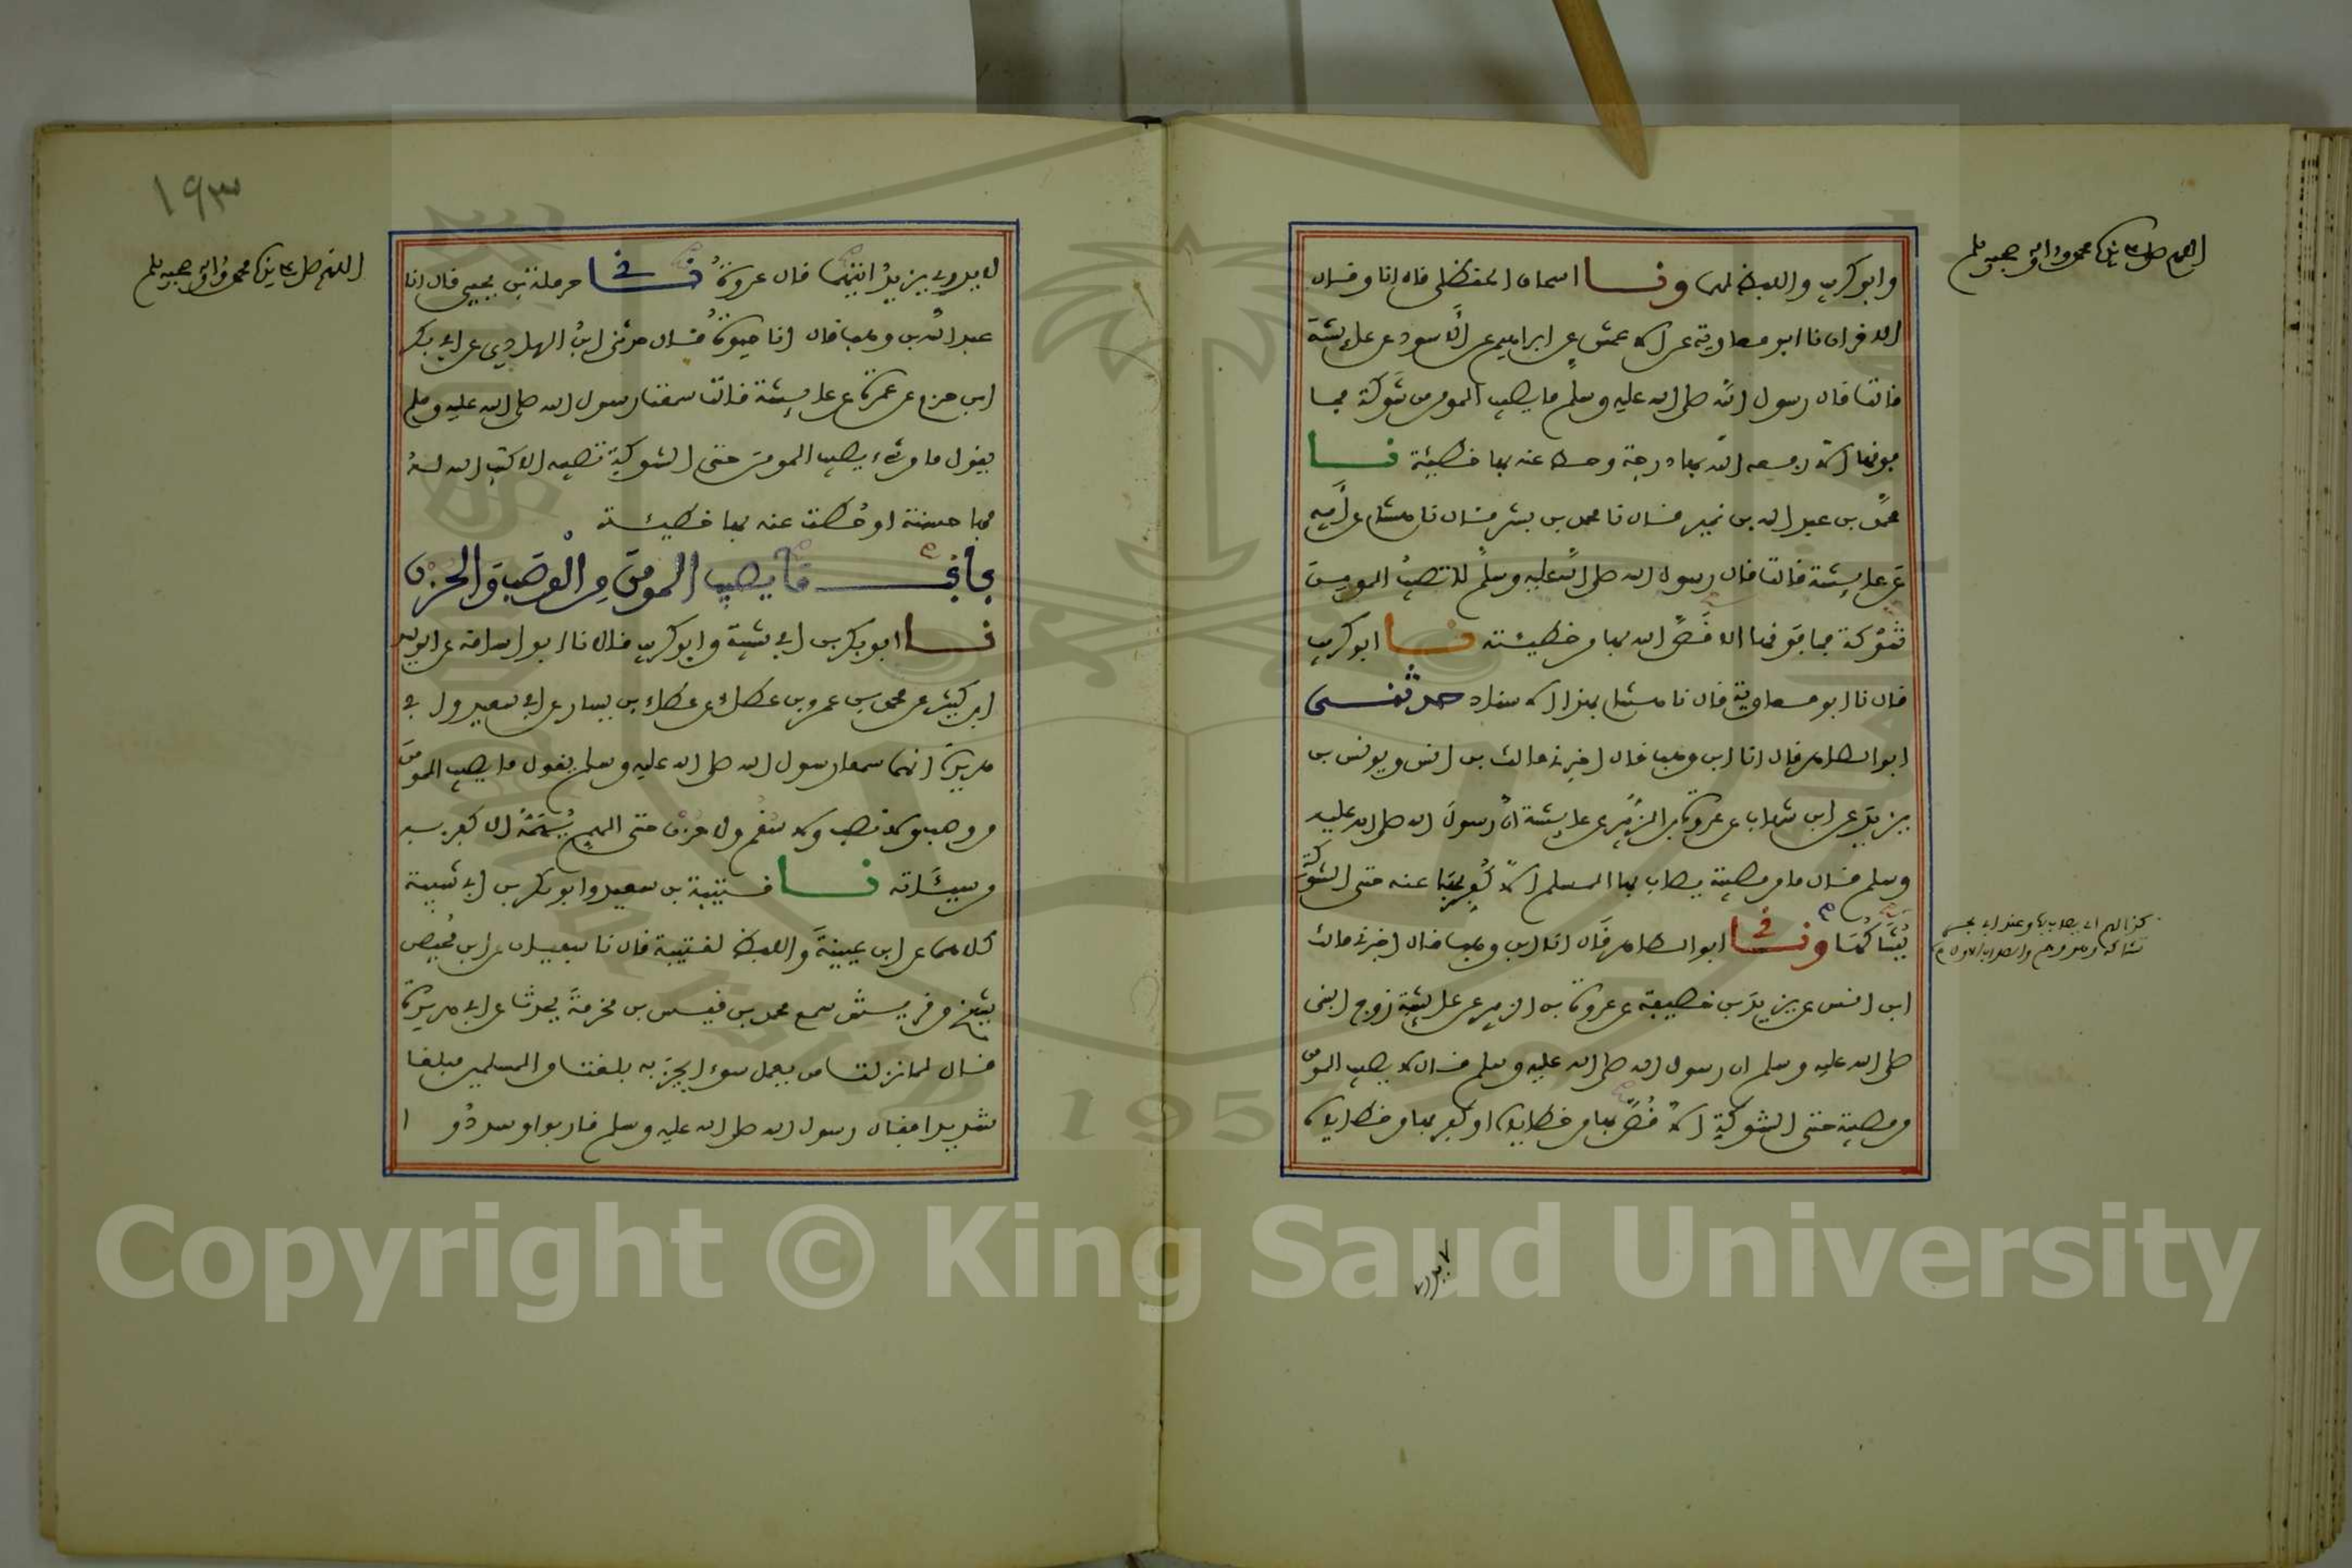 وابو كريب واللفظ لهما ونا اسحاق الحنظلي قال انا وقال
الاخران نا ابو معاوية عن الاعمش عن ابراهيم عن الاسود عن عايشة
قالت قال رسول الله صلى الله عليه وسلم ما يصيب المومن من شوكة فما
فوقها الا رفعه الله بها درجة وحط عنه بها خطيئة نا
محمد بن عبد الله بن نمير قال نا محمد بن بشر قال نا هشام عن ابيه
عن عايشة قالت قال رسول الله صلى الله عليه وسلم لا تصيب المومن
شوكة فما فوقها الا قص الله بها من خطيئته نا ابو كريب
قال نا ابو معاوية قال نا هشام بهذا الاسناد حدثني
ابو الطاهر قال انا ابن وهب قال اخبرني مالك بن انس ويونس بن
يزيد عن ابن شهاب عن عروة بن الزبير عن عايشة ان رسول الله صلى الله عليه
وسلم قال ما من مصيبة يصاب بها المسلم الا كفر بها عنه حتى الشوكة
يشاكها ونا ابو الطاهر قال انا ابن وهب قال اخبرني مالك
ابن انس عن يزيد بن خصيفة عن عروة بن الزبير عن عايشة زوج النبي
صلى الله عليه وسلم ان رسول الله صلى الله عليه وسلم قال لا يصيب المومن
من مصيبة حتى الشوكة الا قص بها من خطاياه او كفر بها من خطاياه
لا يدري
اللهم صل على محمد واله وصحبه وسلم
١٩٣
اللهم صل على محمد واله وصحبه وسلم
لا يدري يزيد ايتهما قال عروة نا حرملة بن يحيى قال انا
عبد الله بن وهب قال انا حيوة قال حدثني ابن الهادي عن ابي بكر
ابن حزم عن عمرة عن عايشة قالت سمعت رسول الله صلى الله عليه وسلم
يقول ما من شيء يصيب المومن حتى الشوكة تصيبه الا كتب الله له
بها حسنة او حطت عنه بها خطيئة
باب ما يصيب المومن من الوصب والحزن
نا ابو بكر بن ابي شيبة وابو كريب قالا نا ابو اسامة عن الوليد
ابن كثير عن محمد بن عمرو بن عطاء عن عطاء بن يسار عن ابي سعيد وابي
هريرة انهما سمعا رسول الله صلى الله عليه وسلم يقول ما يصيب المومن
من وصب ولا نصب ولا سقم ولا حزن حتى الهم يهمه الا كفر به
من سيئاته نا قتيبة بن سعيد وابو بكر بن ابي شيبة
كلاهما عن ابن عيينة واللفظ لقتيبة قال نا سفيان عن ابن محيصن
شيخ من قريش سمع محمد بن قيس بن مخرمة يحدث عن ابي هريرة
قال لما نزلت من يعمل سوءا يجز به بلغت من المسلمين مبلغا
شديدا فقال رسول الله صلى الله عليه وسلم قاربوا وسددوا
Copyright © King Saud University
1957